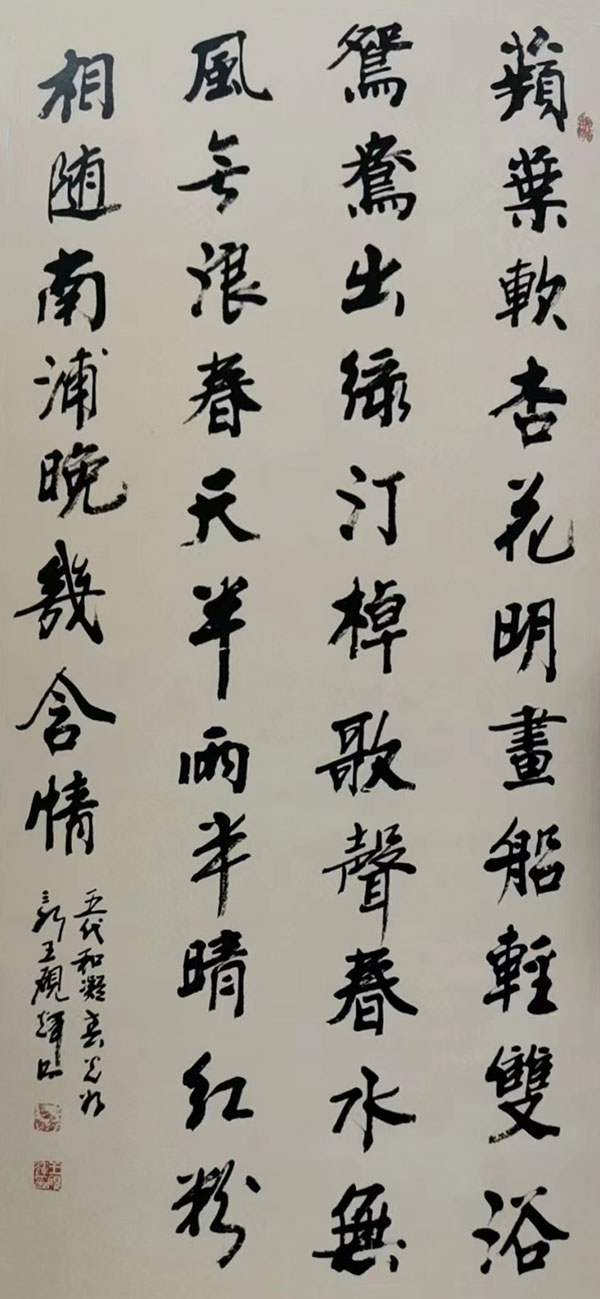 蘋葉軟杏花明畫船輕雙浴
鴛鴦出綠汀棹歌聲春水無
風无浪春天半雨半晴红粉
相随南浦晚幾含情
五代和凝春光好
王硯輝书